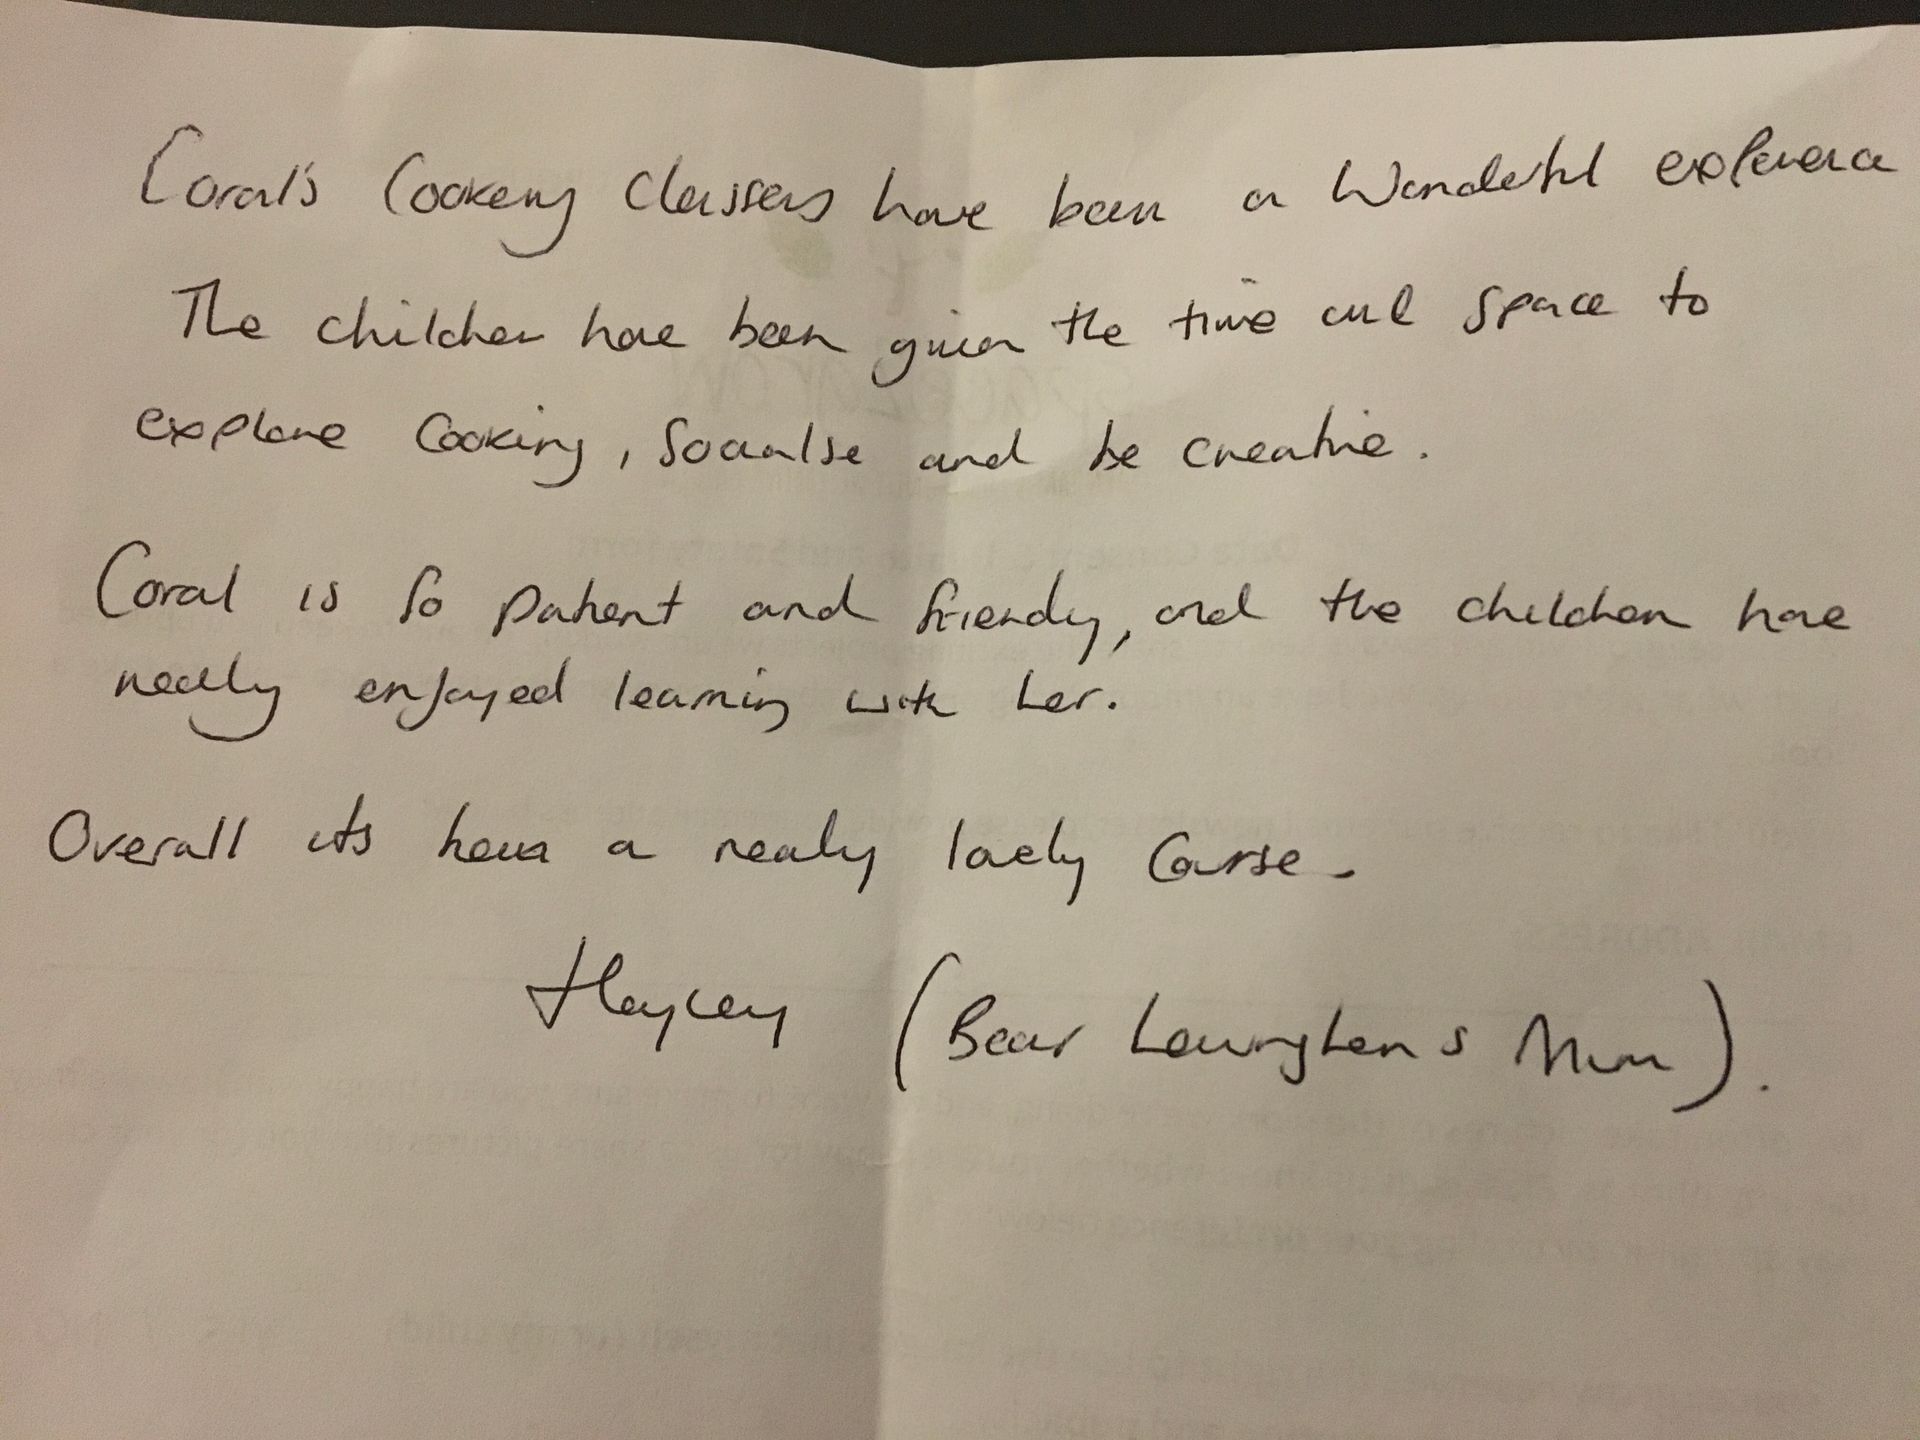 Coral's Cookery Classes have been a Wonderful experience
The children have been given the time and space to
explore Cooking, Socialise and be creative.
Coral is so patient and friendly, and the children have
really enjoyed learning with her.
Overall its been a really lovely Course.
Hayley (Bear Mum).